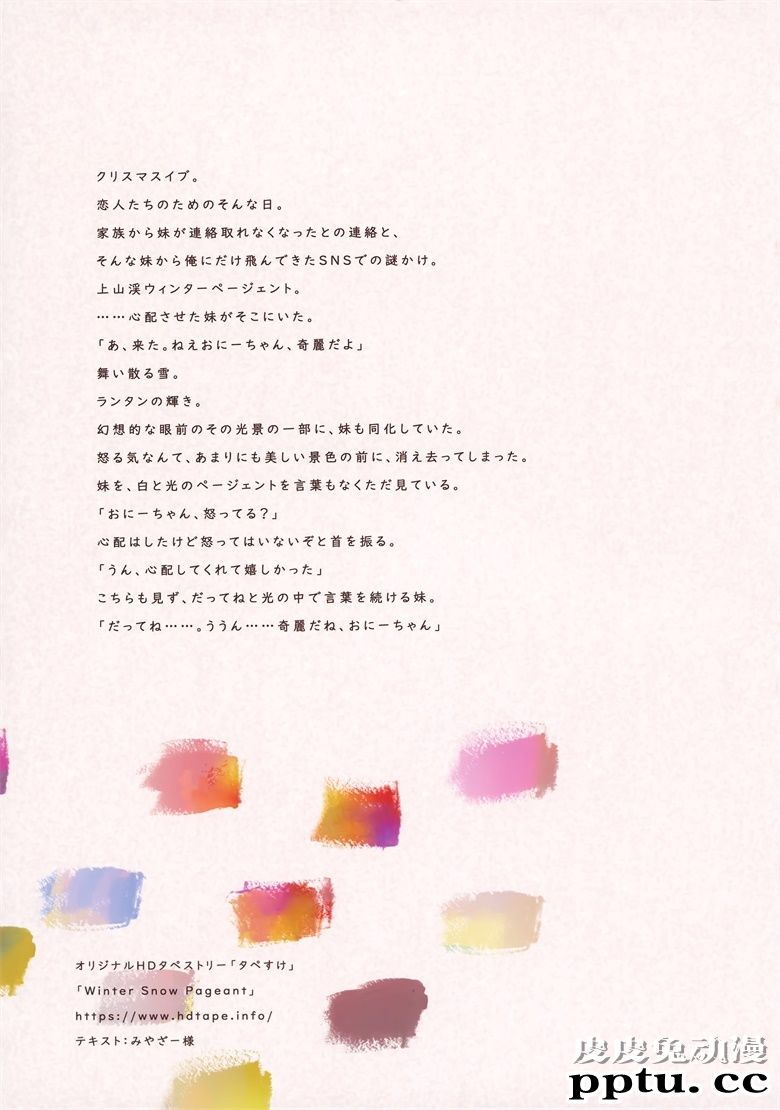 クリスマスイブ。
恋人たちのためのそんな日。
家族から妹が連絡取れなくなったとの連絡と、
そんな妹から俺にだけ飛んできたSNSでの謎かけ。
上山渓ウィンターページェント。
……心配させた妹がそこにいた。
「あ、来た。ねえおにーちゃん、奇麗だよ」
舞い散る雪。
ランタンの輝き。
幻想的な眼前のその光景の一部に、妹も同化していた。
怒る気なんて、あまりにも美しい景色の前に、消え去ってしまった。
妹を、白と光のページェントを言葉もなくただ見ている。
「おにーちゃん、怒ってる?」
心配はしたけど怒ってはいないぞと首を振る。
「うん、心配してくれて嬉しかった」
こちらも見ず、だってねと光の中で言葉を続ける妹。
「だってね……。ううん……奇麗だね、おにーちゃん」
オリジナルHDタペストリー「タペすけ」
「Winter Snow Pageant」
https://www.hdtape.info/
テキスト:みやざー様
虎虎兔动漫
pptu.cc